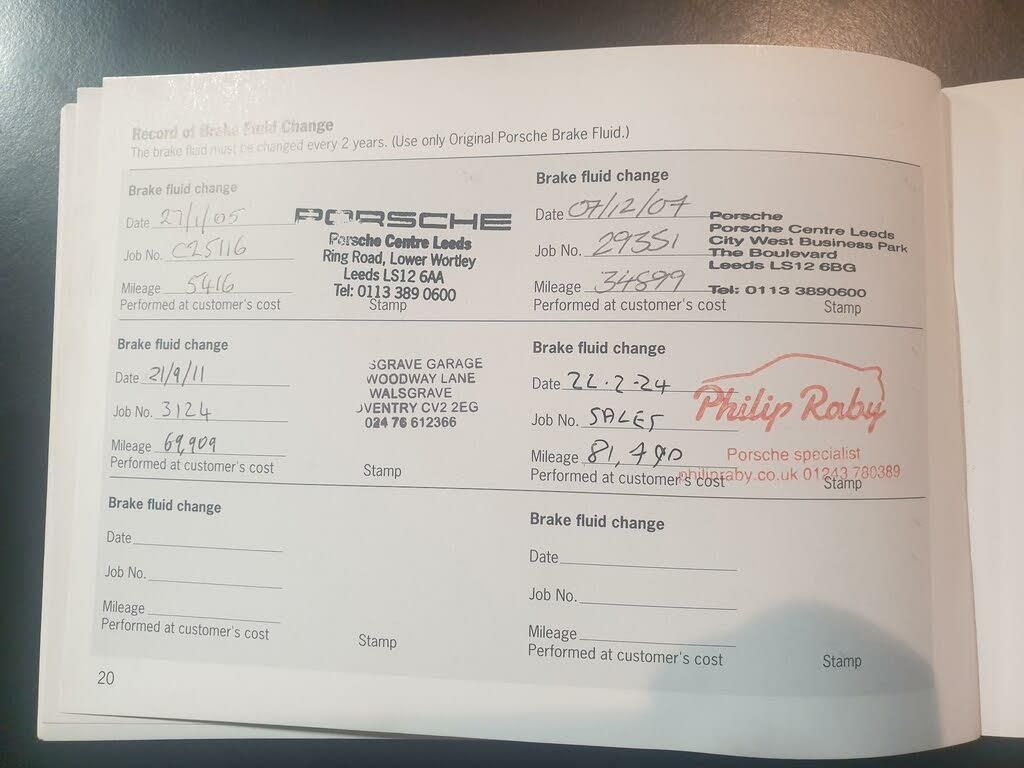 Record of Brake Fluid Change
The brake fluid must be changed every 2 years. (Use only Original Porsche Brake Fluid.)
Brake fluid change
Date 27/1/05
Job No. C25116
Mileage 5416
Performed at customer's cost
Stamp
PORSCHE
Porsche Centre Leeds
Ring Road, Lower Wortley
Leeds LS12 6AA
Tel: 0113 389 0600
Brake fluid change
Date 07/12/07
Job No. 29351
Mileage 34899
Performed at customer's cost
Stamp
Porsche
Porsche Centre Leeds
City West Business Park
The Boulevard
Leeds LS12 6BG
Tel: 0113 3890600
Brake fluid change
Date 21/9/11
Job No. 3124
Mileage 69,909
Performed at customer's cost
Stamp
SGRAVE GARAGE
WOODWAY LANE
WALSGRAVE
OVENTRY CV2 2EG
024 76 612366
Brake fluid change
Date 22.2.24
Job No. SALES
Mileage 81,490
Performed at customer's cost
Stamp
Philip Raby
Porsche specialist
philipraby.co.uk 01243 780389
Brake fluid change
Date
Job No.
Mileage
Performed at customer's cost
Stamp
Brake fluid change
Date
Job No.
Mileage
Performed at customer's cost
Stamp
20